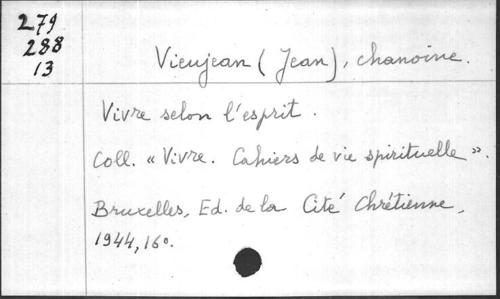 279
288
13
Vieujean (Jean), chanoine.
Vivre selon l'esprit.
Coll. « Vivre. Cahiers de vie spirituelle ».
Bruxelles, Ed. de la Cité Chrétienne,
1944, 16°.